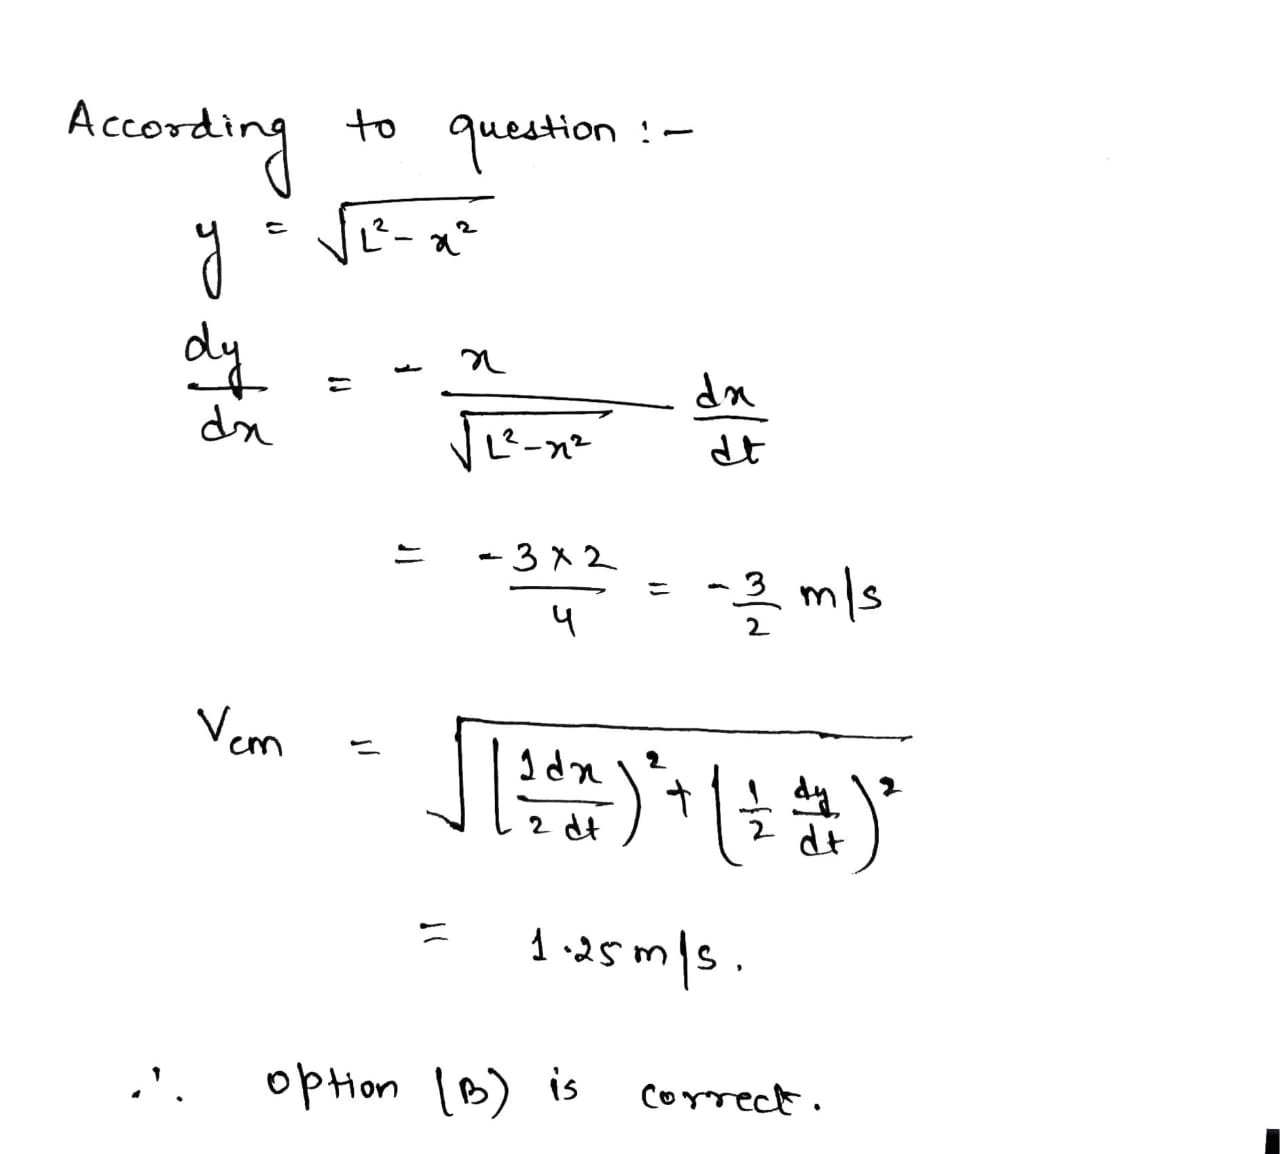 According to question :-
y = √(L² - x²)
dy/dx = - x/√(L² - x²) dx/dt
= - 3 × 2/4 = - 3/2 m/s
Vcm = √((1 dx/2 dt)² + (1/2 dy/dt)²)
= 1.25 m/s.
∴ option (B) is correct.